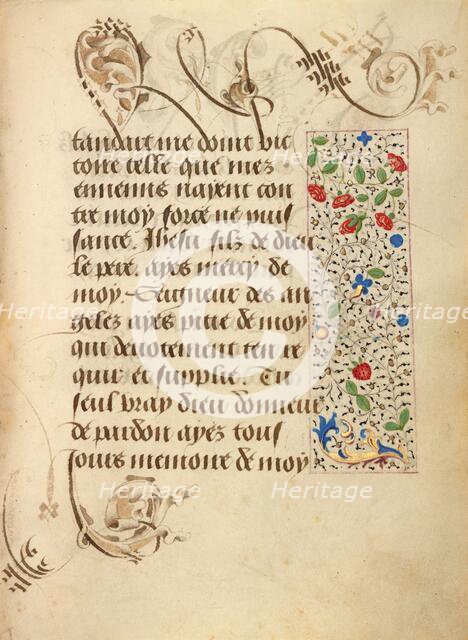 tandart me doint vic
toire telle que mez
ennemis nayent con
tre moy force ne puis
sance. Jhesu filz de dieu
le pere. ayes mercy de
moy. Seigneur des an
gelez ayes pitie de moy
qui devotement ten re
quir et supplie. Tu
seul vray dieu donneur
de pardon ayez tous
jours memoire de moy